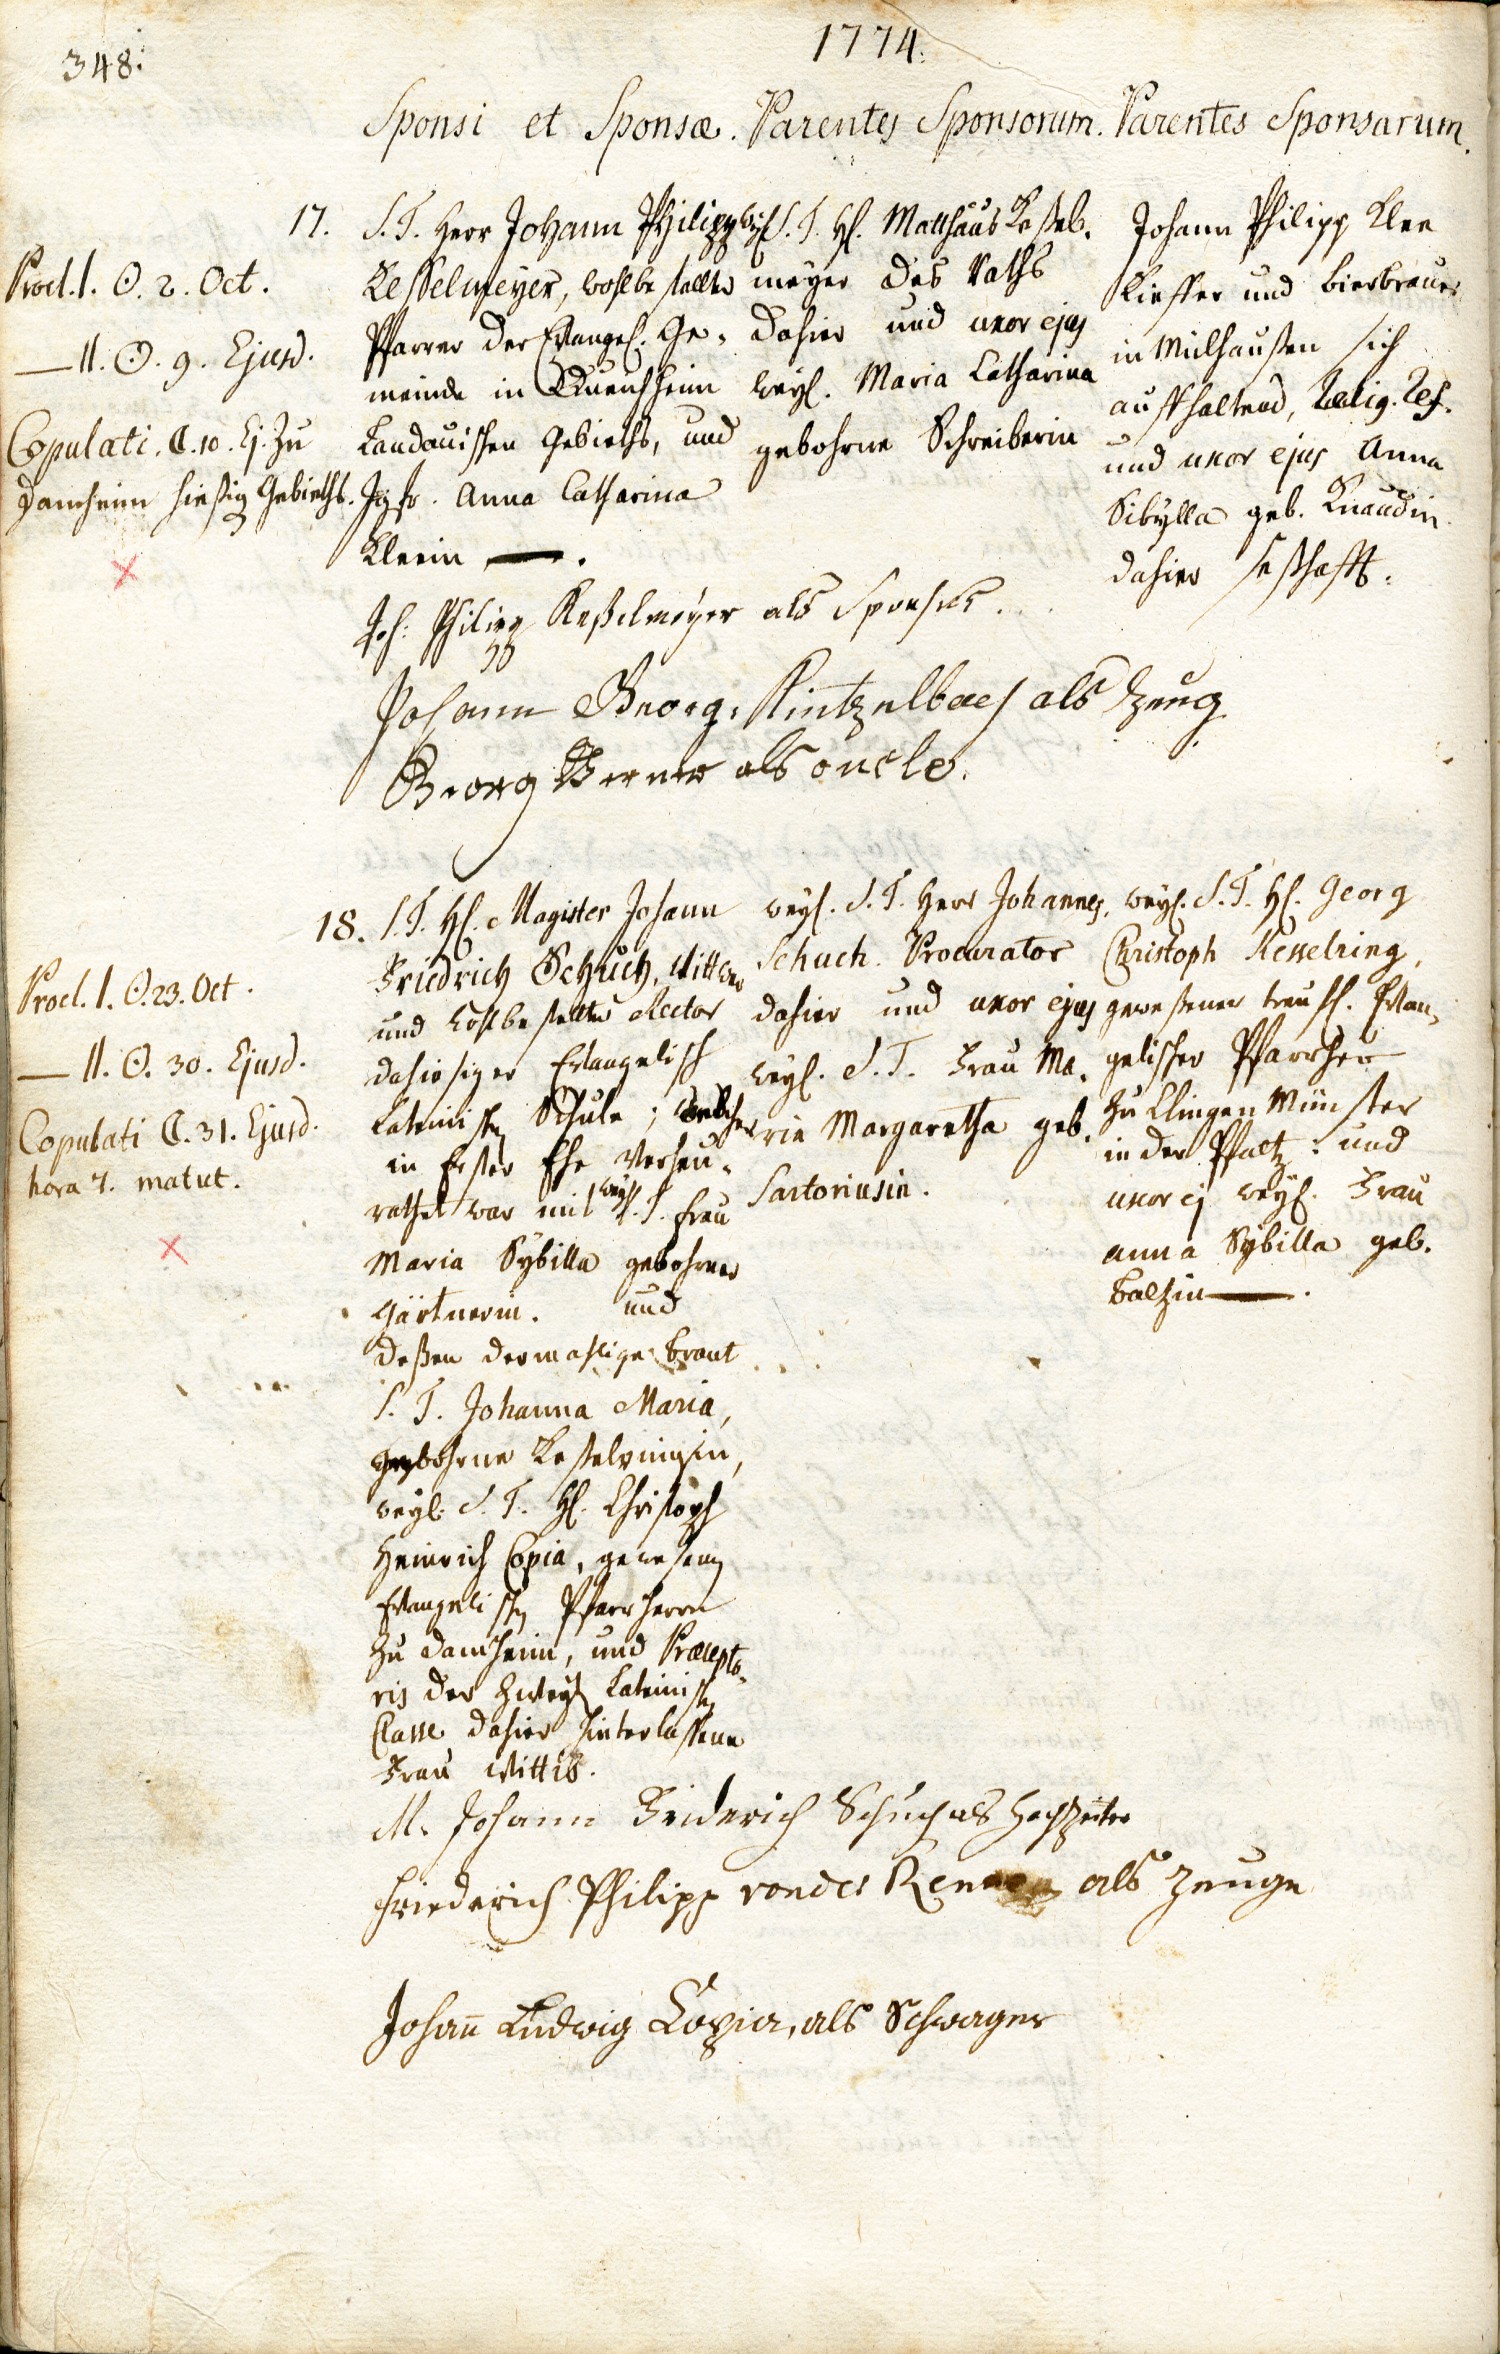 348.
1774.
Sponsi et Sponsæ. Parentes Sponsorum. Parentes Sponsarum.
Procl. I. ☉. 2. Oct.
— II. ☉. 9. Ejusd.
Copulati. ☾. 10. Ej. zu
Damheim hiesig Gebieths.
17. S. T. Herr Johann Philipp
Kesselmeyer, wohlbestellter
Pfarrer der Evangel. Ge-
meinde in Queichheim
Landauischen Gebieths, und
Jgfr. Anna Catharina
Kleein —.
S. T. H. Matthäus Keßel-
meyer des Raths
dahier und uxor ejus
weyl. Maria Catharina
gebohrne Schreiberin
Johann Philipp Klee
Kieffer und bierbrauer
in Mülhaußen sich
auffhaltend, Relig. Ref.
und uxor ejus Anna
Sibylla geb. Knaudin
dahier seßhafft.
Joh: Philipp Keßelmeyer als Sponsus.
Johann Georg Kintzelbach als Zeug
Georg als oncle.
Procl. I. ☉. 23. Oct.
— II. ☉. 30. Ejusd.
Copulati ☾. 31. Ejusd.
hora 7. matut.
18. S. T. H. Magister Johann
Friedrich Schuch, Wittwer
und wohlbestellter Rector
dahiesiger Evangelisch
Lateinischen Schule; welcher
in Erster Ehe verheu-
rathet war mit weyl. S. T. Frau
Maria Sybilla gebohrner
Gärtnerin. und
deßen dermahlige Braut
S. T. Johanna Maria,
gebohrne Keßelringin,
weyl. S. T. H. Christoph
Heinrich Copia, gewesenen
Evangelischen Pfarrherrn
zu Damheim, und Præcepto-
ris der zweyten Lateinischen
Classe dahier hinterlassene
Frau Wittib.
weyl. S. T. Herr Johannes
Schuch Procurator
dahier und uxor ejus
weyl. S. T. Frau Ma-
ria Margaretha geb.
Sartoriusin.
weyl. S. T. H. Georg
Christoph Kesselring,
geweßener treufl. Evan-
gelischer Pfarrherr
zu Clingen Münster
in der Pfaltz: und
uxor ej weyl. Frau
Anna Sybilla geb.
Balzin —.
M. Johann Friderich Schuch als Hochzeiter
Friederich Philipp von des als Zeuge
Johañ Ludwig Copia, als Schwager